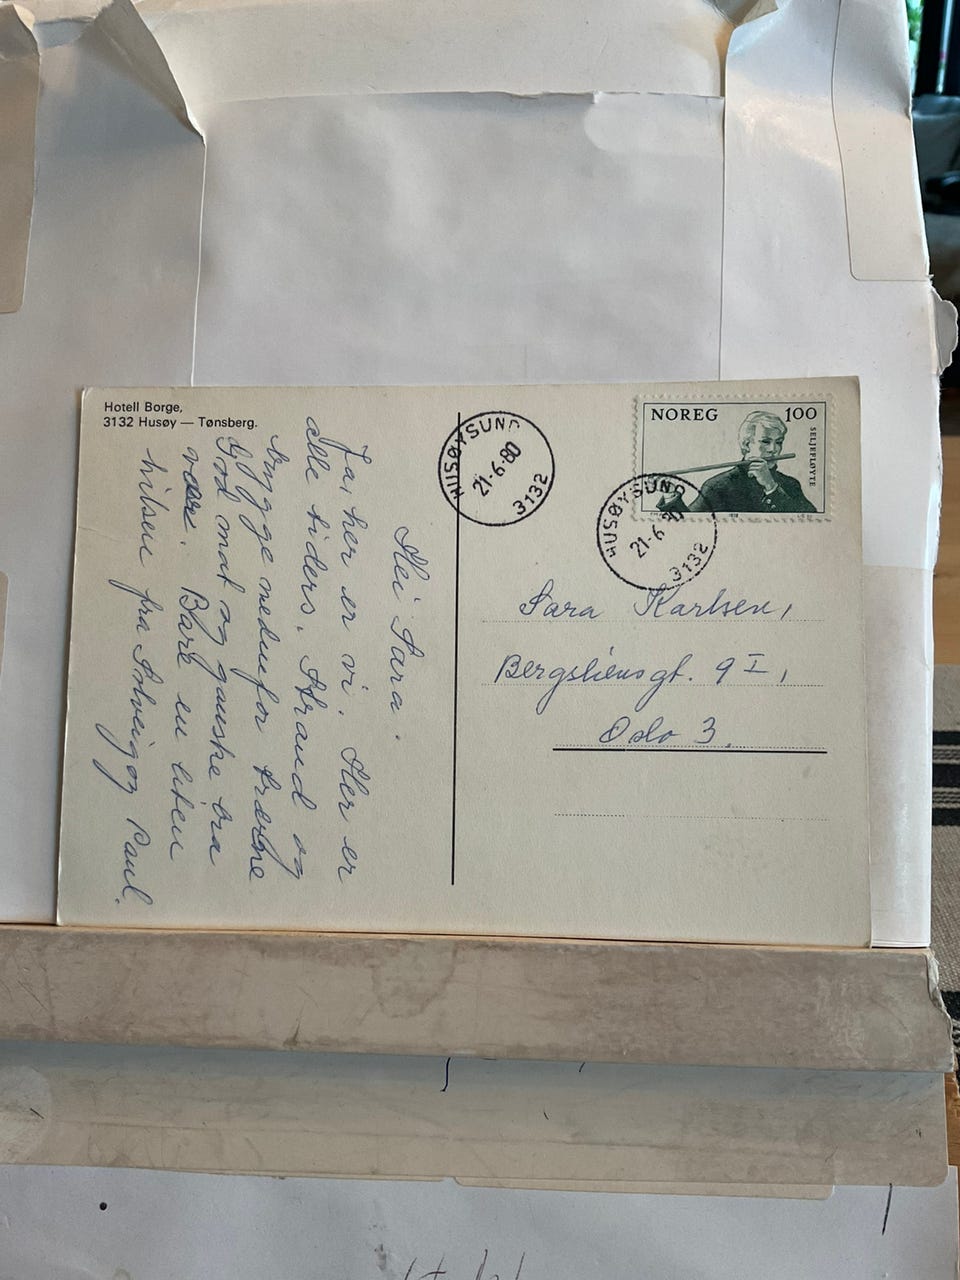 Hotell Borge,
3132 Husøy — Tønsberg.
Hei Sara.
Ja, her er vi. Her er
alle tiders. Strand og
brygge nedenfor trærne
God mat og ganske bra
vær. Bare en liten
hilsen fra Solveig og Paul.
HUSØYSUND
21-6-80
3132
NOREG 100
SELJEFLØYTE
HUSØYSUND
21-6-80
3132
Sara Karlsen,
Bergsliensgt. 9 I,
Oslo 3.